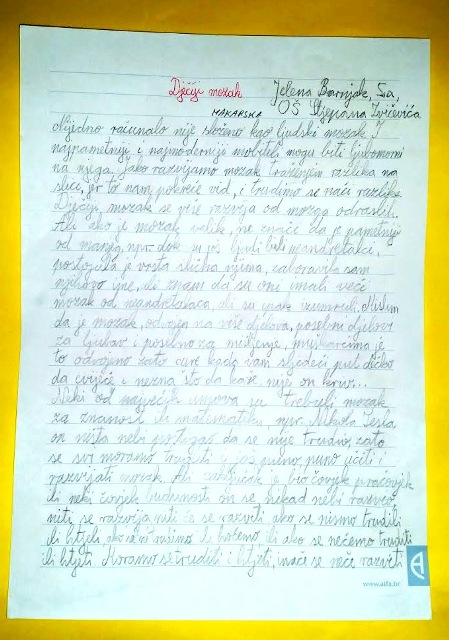 Dječji mozak Jelena Barnjak, 5.a,
MAKARSKA OŠ Stjepana Ivičevića
Nijedno računalo nije složeno kao ljudski mozak. I
najpametniji i najmoderniji mobiteli mogu biti ljubomorni
na njega. Jako razvijamo mozak traženjem razlika na
slici, jer to nam pokreće vid, i trudimo se naći razlike.
Dječji mozak se više razvija od mozga odraslih.
Ali ako je mozak velik, ne znači da je pametniji
od manjeg, npr. dok su još ljudi bili neandertalci,
postojala je vrsta slična njima, zaboravila sam
njihovo ime, ali znam da su oni imali veći
mozak od neandertalaca, ali su ipak izumrli. Mislim
da je mozak odvojen na više djelova, posebni djelovi
za ljubav i posebno za mišljenje, muškarcima je
to odvojeno zato cure kada vam sljedeći put dečko
da cvijeće i nezna što da kaže nije on kriv...
Neki od najvećih umova su trebali mozak
za znanost ili matematiku, npr. Nikola Tesla
on ništa nebi postigao da se nije trudio, zato
se svi moramo truditi i još puno, puno učiti i
razvijati mozak. Ali zaključak je bio čovjek pračovjek
ili neki čovjek budućnosti on se nikad nebi razvio
niti se razvija niti će se razviti ako se nismo trudili
ili htjeli, ako se ne trudimo ili hoćemo, ili ako se nećemo truditi
ili htjeti. Moramo se truditi i htjeti, inače se neće razviti
www.aifa.hr